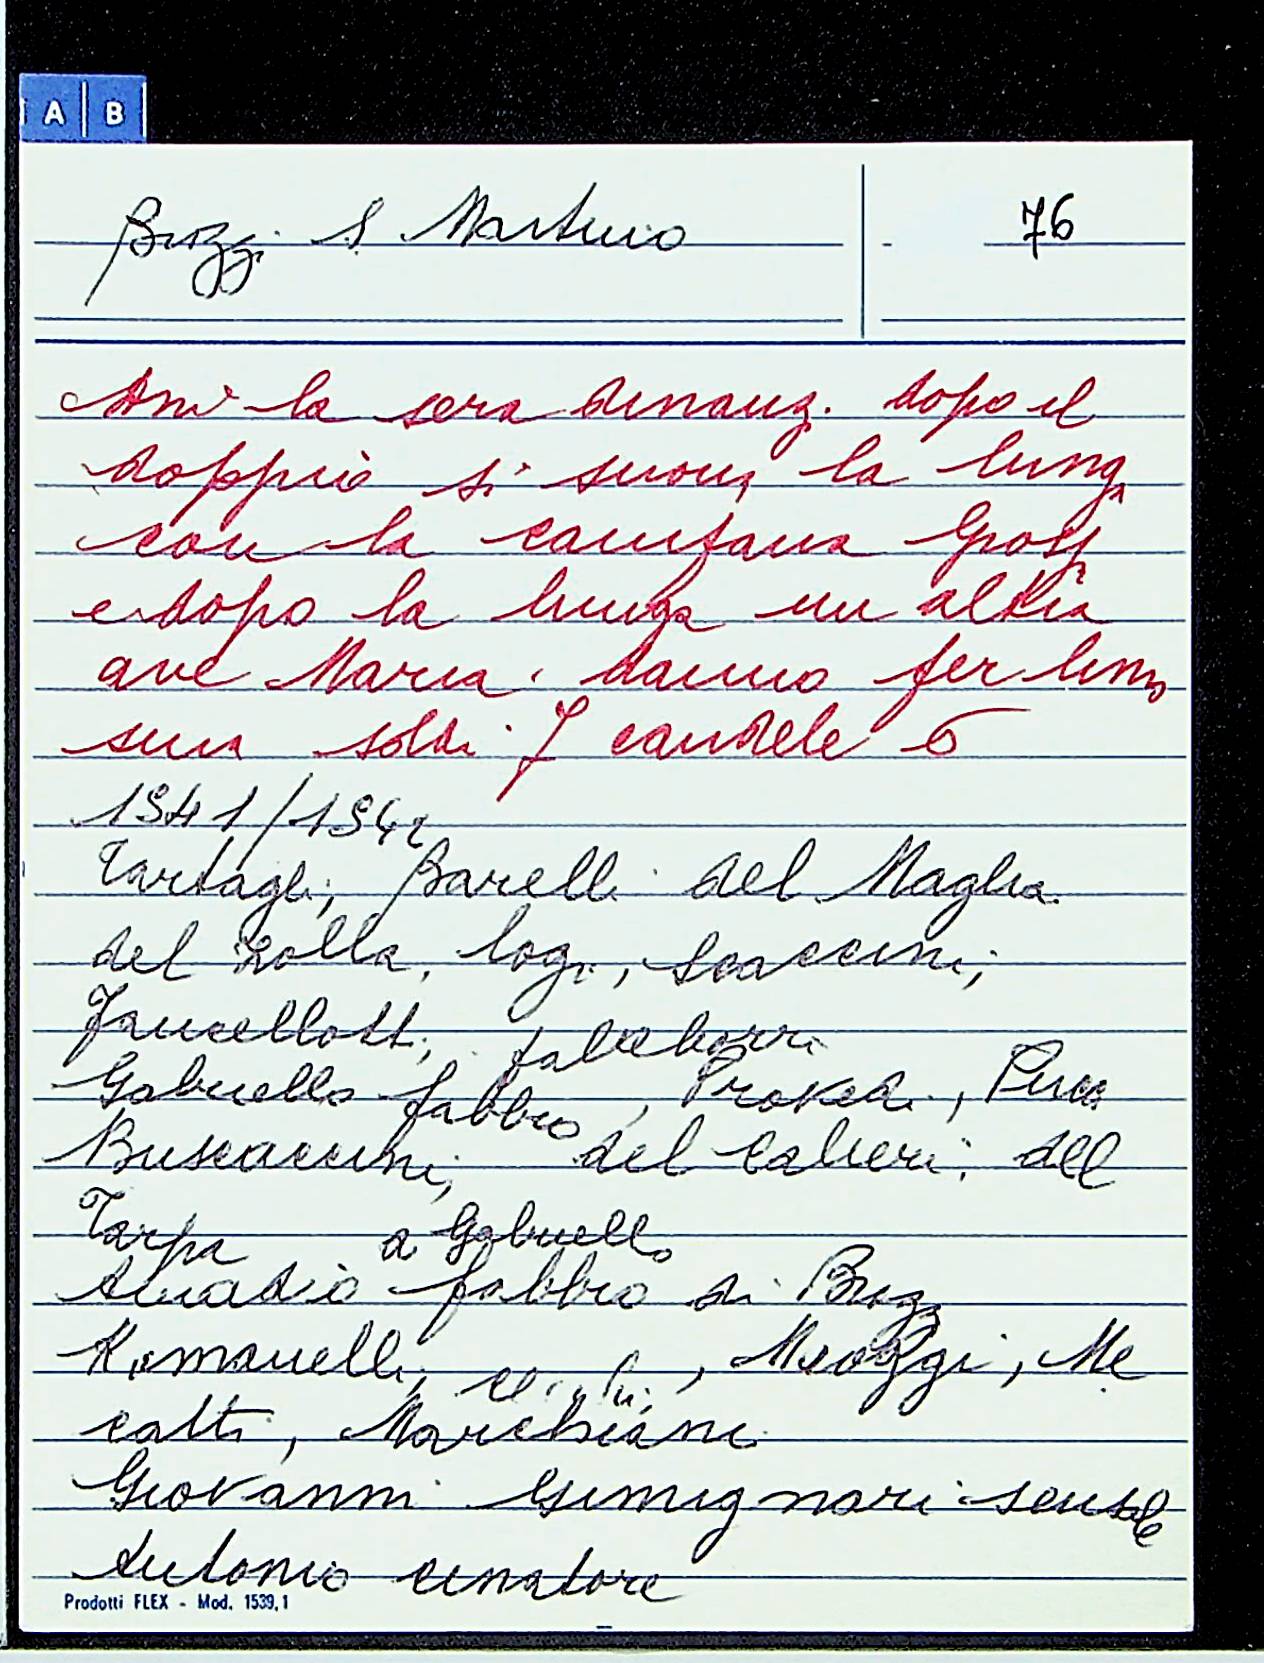 A B
Bozzi S Martino
76
Ani la sera dinanz. dopo il
doppio si suona la lunga
con la campana Grossa
e dopo la lunga un altra
ave Maria. danno per limo
sina soldi 7 candele 6
1541/1542
Tartagli, Barelli del Maglia
del Zolla, Scaccini,
Fancellotti,
Gabriello fabbro,
Buscaccini, del del
Tarpa a Gabriello
Amadio fabbro di Bozz
Romanelli, Meozzi, Me
catti, Marchiani
Giovanni Gimignani sensale
Antonio cimatore
Prodotti FLEX - Mod. 1539,1